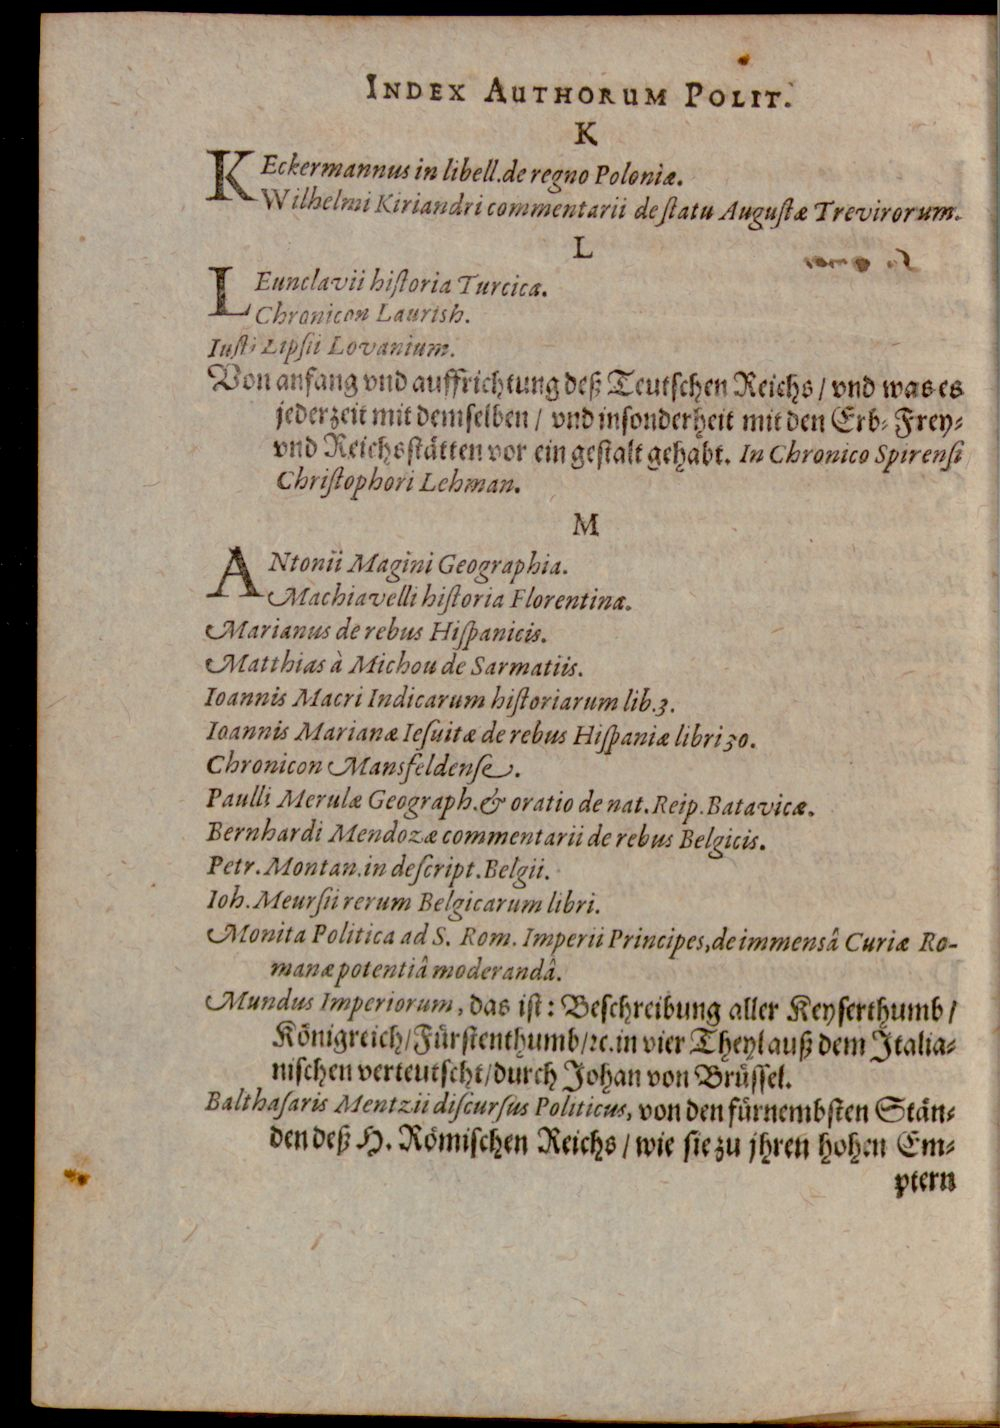 INDEX AUTHORUM POLIT.
K
KEckermannus in libell. de regno Poloniæ.
Wilhelmi Kiriandri commentarii de ſtatu Auguſtæ Trevirorum.
L
LEunclavii hiſtoria Turcica.
Chronicon Laurish.
Iuſti Lipſii Lovanium.
Von anfang vnd auffrichtung deß Teutſchen Reichs / vnd was es
jederzeit mit demſelben / vnd inſonderheit mit den Erb- Frey-
vnd Reichsſtätten vor ein geſtalt gehabt. In Chronico Spirenſi
Chriſtophori Lehman.
M
ANtonii Magini Geographia.
Machiavelli hiſtoria Florentina.
Marianus de rebus Hiſpanicis.
Matthias à Michou de Sarmatiis.
Ioannis Macri Indicarum hiſtoriarum lib. 3.
Ioannis Marianæ Ieſuitæ de rebus Hiſpaniæ libri 30.
Chronicon Mansfeldenſe.
Paulli Merulæ Geograph. & oratio de nat. Reip. Batavicæ.
Bernhardi Mendozæ commentarii de rebus Belgicis.
Petr. Montan. in deſcript. Belgii.
Ioh. Meurſii rerum Belgicarum libri.
Monita Politica ad S. Rom. Imperii Principes, de immensâ Curiæ Ro-
manæ potentiâ moderandâ.
Mundus Imperiorum, das iſt: Beſchreibung aller Keyſerthumb /
Königreich / Fürſtenthumb / ꝛc. in vier Theyl auß dem Italia-
niſchen verteutſcht / durch Johan von Brüſſel.
Balthaſaris Mentzii diſcurſus Politicus, von den fürnembſten Stän-
den deß H. Römiſchen Reichs / wie ſie zu jhren hohen Em-
ptern